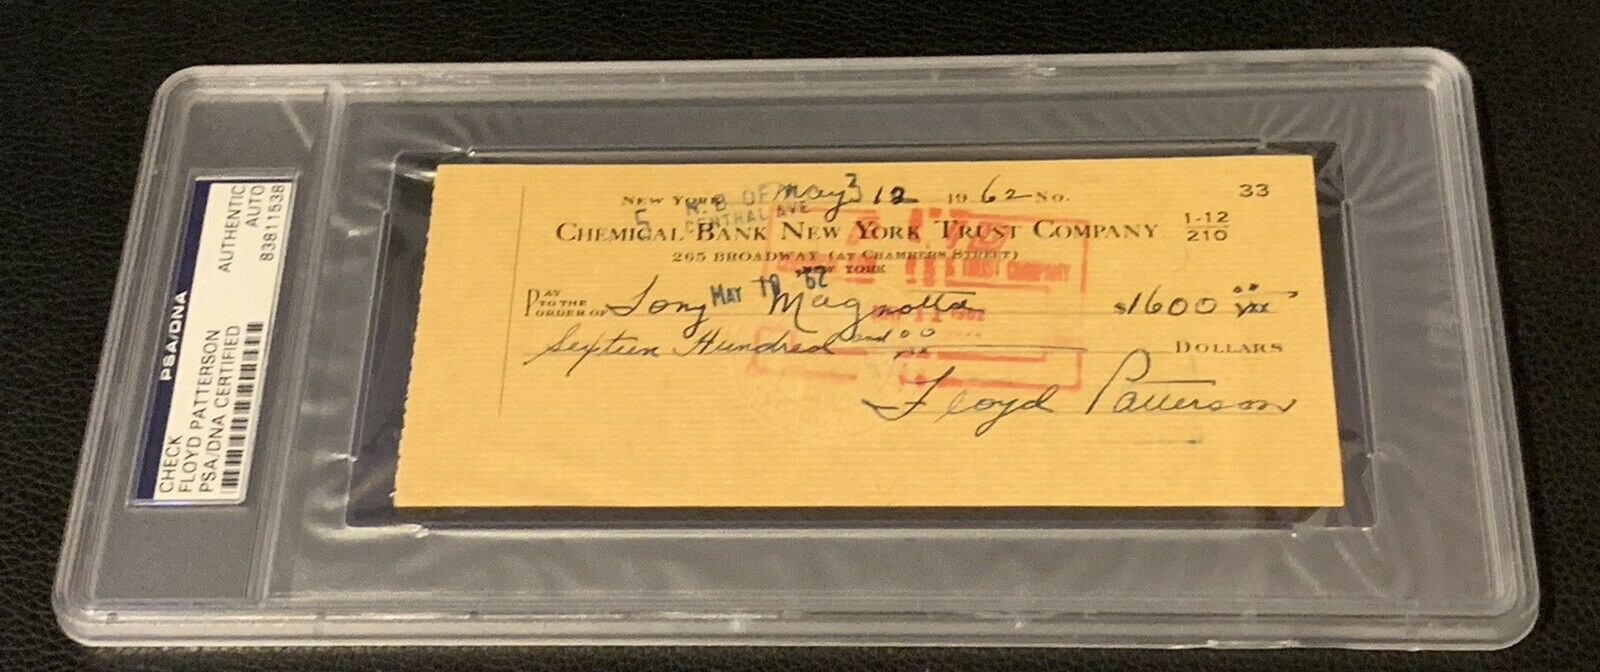 PSA/DNA
CHECK
FLOYD PATTERSON
PSA/DNA CERTIFIED
AUTHENTIC
AUTO
83811538
33
NEW YORK May 12 1962 No.
N. B. OF
CENTRAL AVE
CHEMICAL BANK NEW YORK TRUST COMPANY 1-12
210
265 BROADWAY (AT CHAMBERS STREET)
NEW YORK
TRUST COMPANY
MAY 10 '62
PAY TO THE ORDER OF Tony Magnotta $1600 00/xx
1962
Sixteen Hundred and 00/xx DOLLARS
Floyd Patterson